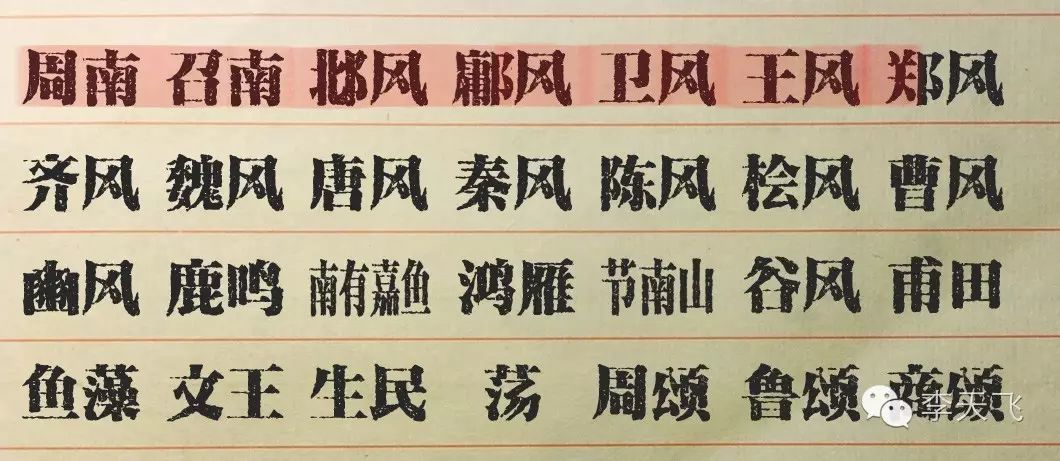 周南 召南 邶风 鄘风 卫风 王风 郑风
齐风 魏风 唐风 秦风 陈风 桧风 曹风
豳风 鹿鸣 南有嘉鱼 鸿雁 节南山 谷风 甫田
鱼藻 文王 生民 荡 周颂 鲁颂 商颂
李天飞